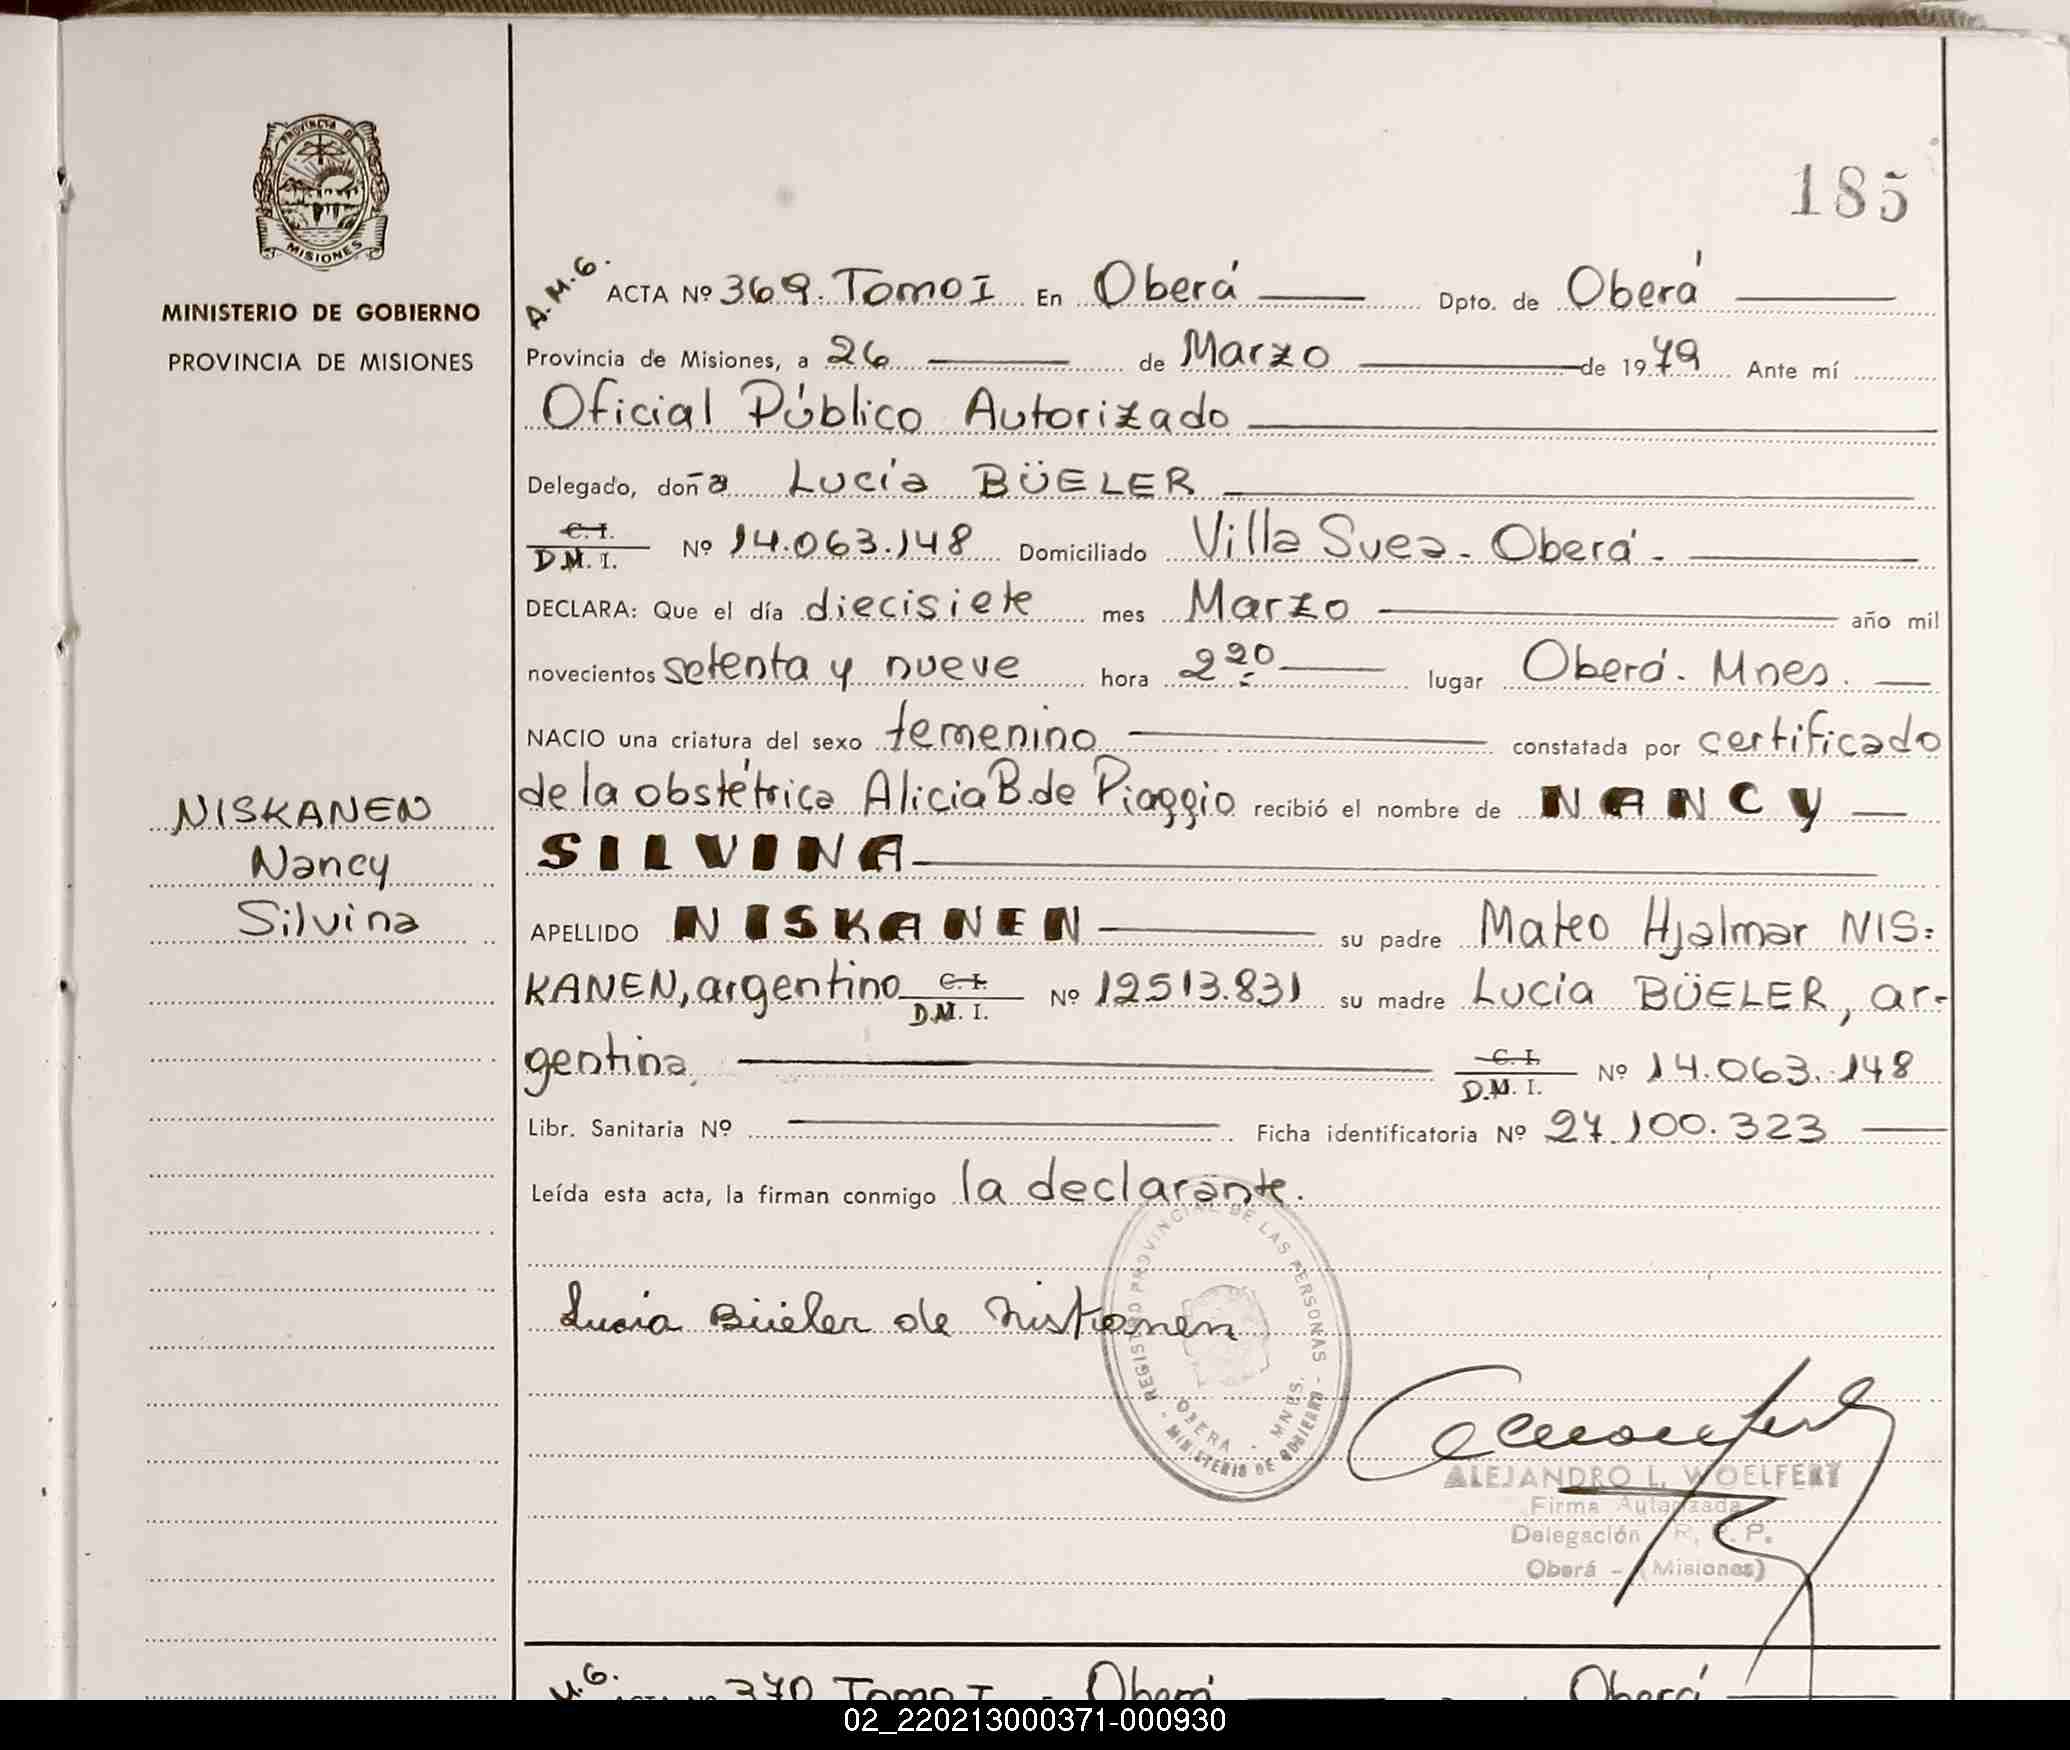 PROVINCIA DE
MISIONES
MINISTERIO DE GOBIERNO
PROVINCIA DE MISIONES
185
A.M.G.
ACTA Nº 369. Tomo I En Oberá Dpto. de Oberá
Provincia de Misiones, a 26 de Marzo de 1979 Ante mí
Oficial Público Autorizado
Delegado, doña Lucía BÜELER
C.I.
D.M.I. Nº 14.063.148 Domiciliado Villa Suea - Oberá -
DECLARA: Que el día diecisiete mes Marzo año mil
novecientos setenta y nueve hora 2 20 lugar Oberá. Mnes.
NACIO una criatura del sexo femenino constatada por certificado
de la obstétrica Alicia B. de Piaggio recibió el nombre de NANCY
SILVINA
NISKANEN
Nancy
Silvina
APELLIDO NISKANEN su padre Mateo Hjalmar NIS=
KANEN, argentino C.I. D.M.I. Nº 12513.831 su madre Lucía BÜELER, ar-
gentina, C.I. D.M.I. Nº 14.063.148
Libr. Sanitaria Nº Ficha identificatoria Nº 27.100.323
Leída esta acta, la firman conmigo la declarante.
REGISTRO PROVINCIAL DE LAS PERSONAS
OBERA - MNES.
- MINISTERIO DE GOBIERNO -
Lucia Büeler de Niskanen
ALEJANDRO L. WOELFERT
Firma Autorizada
Delegación R. P. P.
Oberá - (Misiones)
M.G. ACTA Nº 370 Tomo I Oberá Oberá
02_220213000371-000930